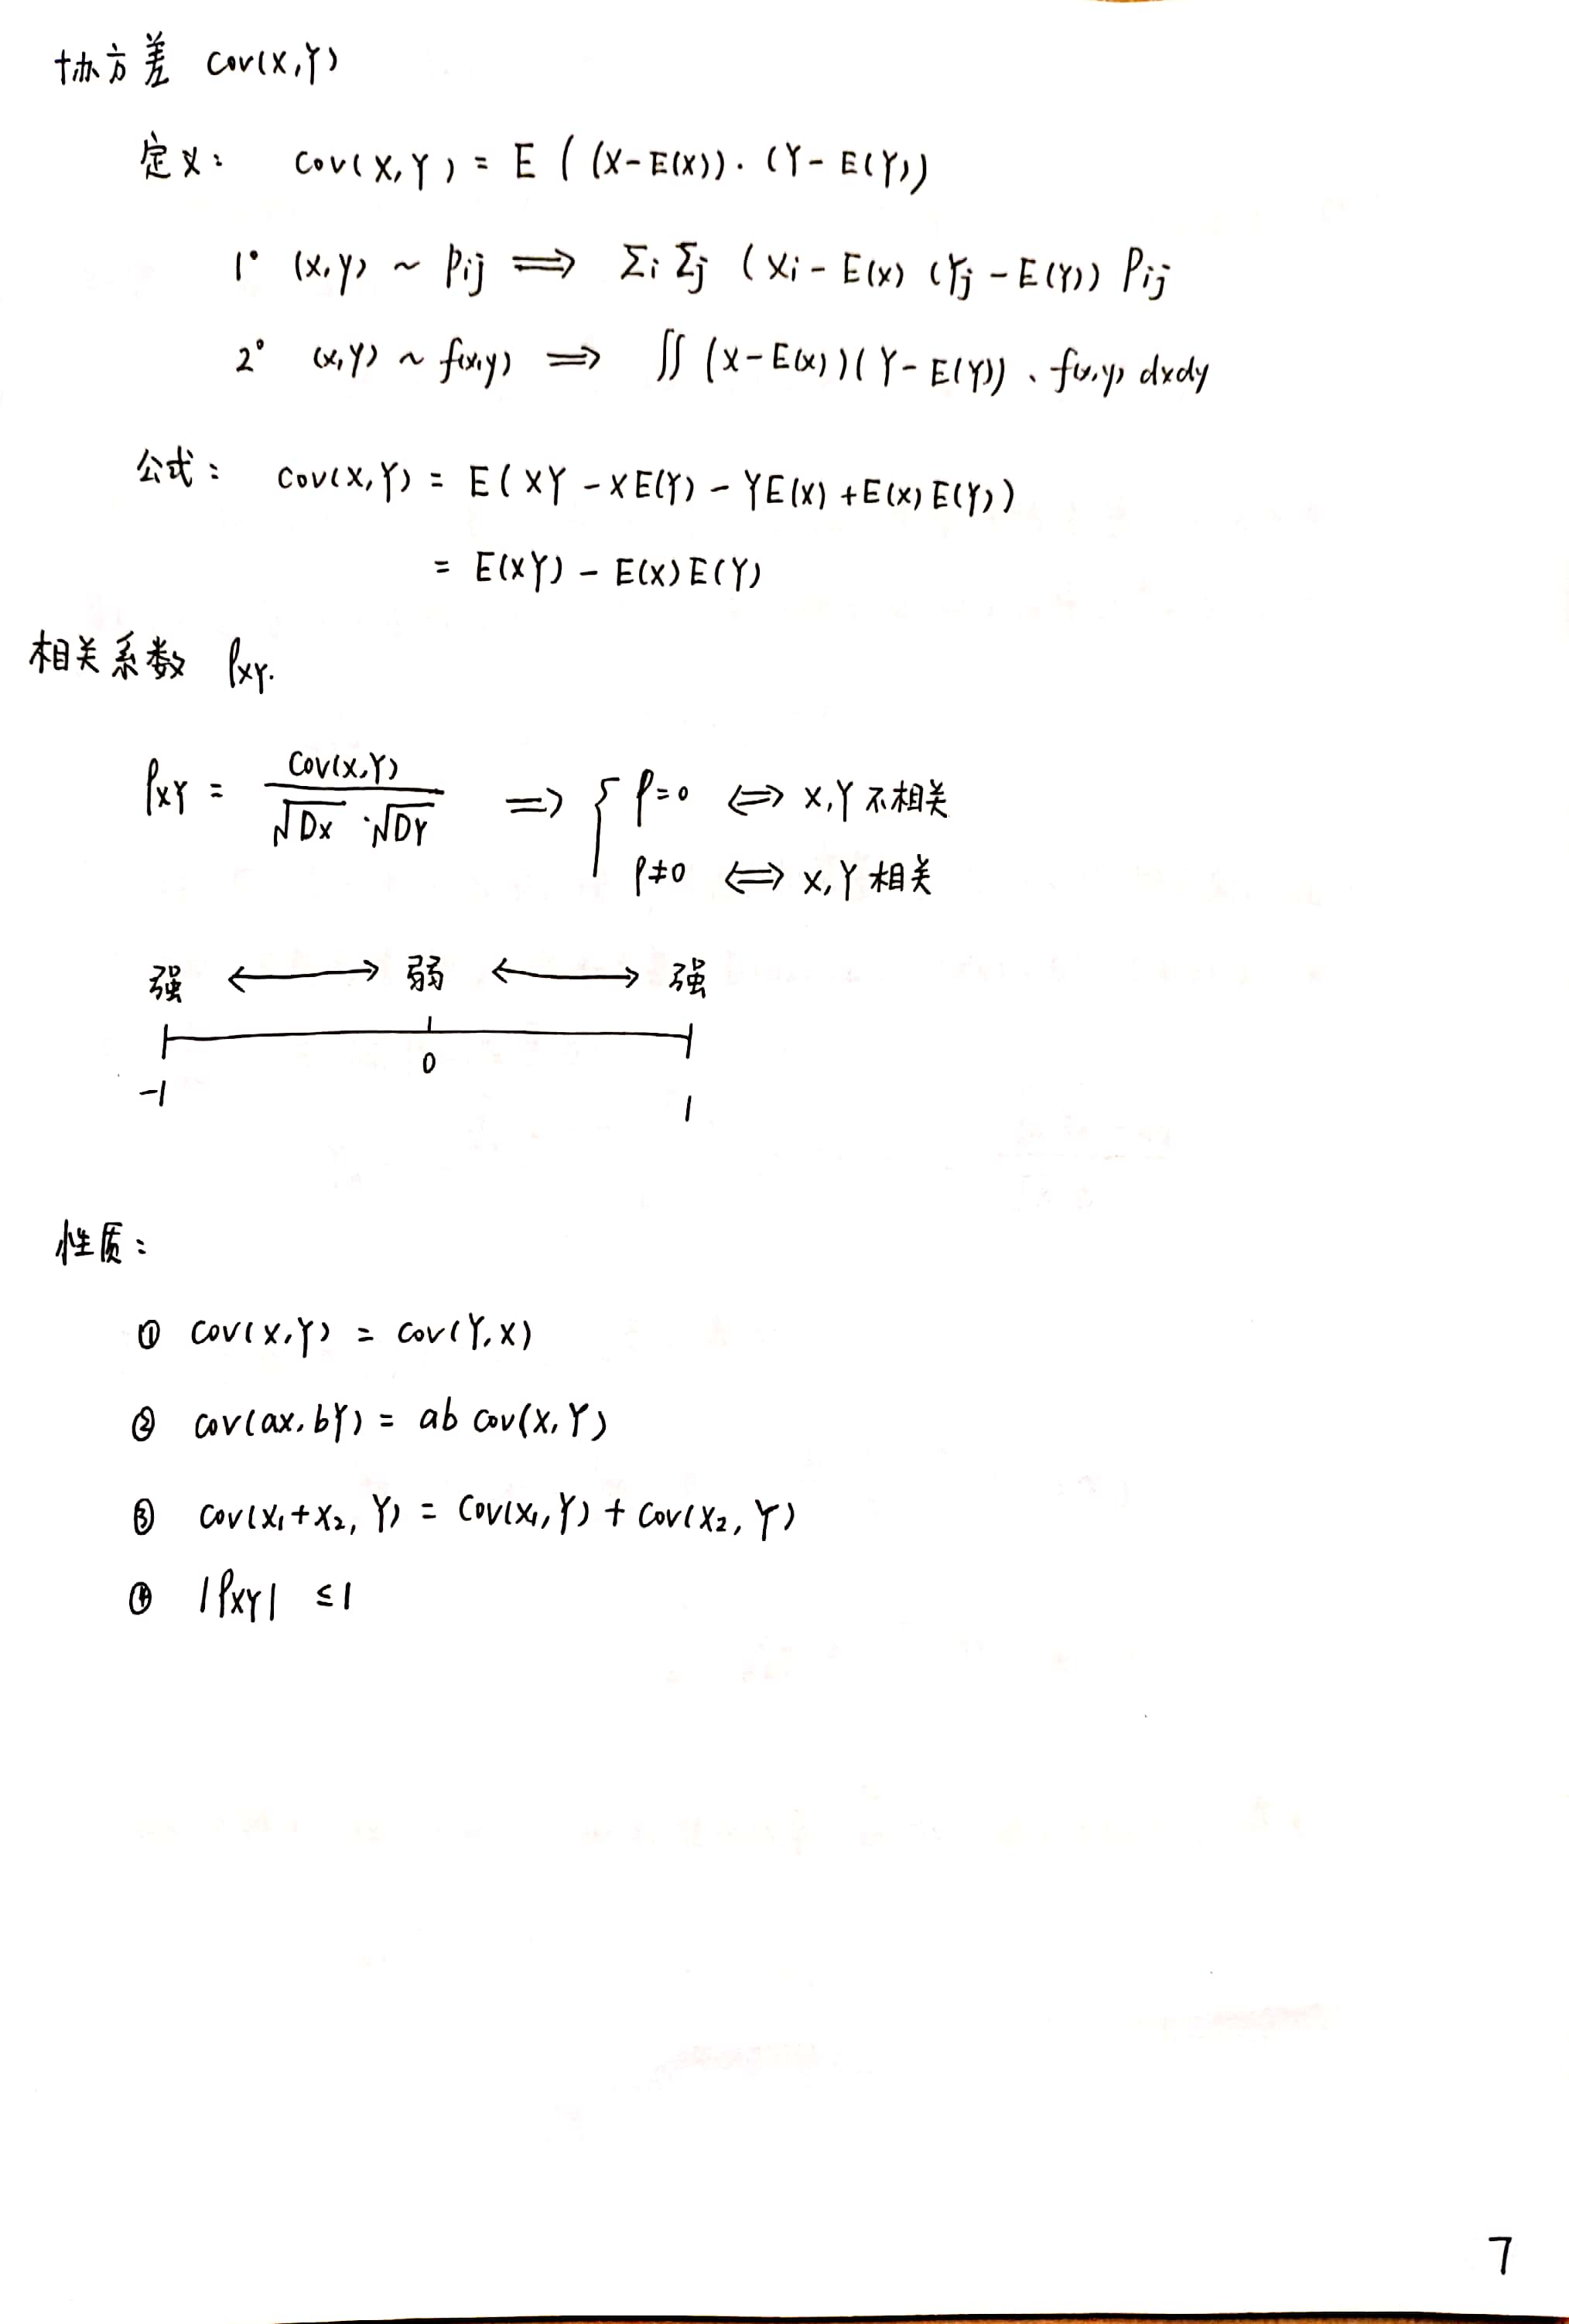 协方差 Cov(X,Y)
定义： Cov(X,Y) = E ( (X-E(X))·(Y-E(Y))
1° (x,y) ~ Pij ⟹ Σi Σj (Xi-E(x) (Yj-E(Y)) Pij
2° (x,y) ~ f(x,y) ⟹ ∬ (X-E(x))(Y-E(Y))、f(x,y) dxdy
公式： Cov(X,Y) = E(XY-XE(Y)-YE(X)+E(X)E(Y))
= E(XY) - E(X)E(Y)
相关系数 ρXY.
ρXY = Cov(X,Y) / √DX ·√DY ⟹ { ρ=0 ⟺ X,Y 不相关
ρ≠0 ⟺ X,Y 相关
强 ⟷ 弱 ⟷ 强
-1 0 1
性质：
① Cov(X,Y) = Cov(Y,X)
② Cov(aX,bY) = ab Cov(X,Y)
③ Cov(X₁+X₂, Y) = Cov(X₁,Y) + Cov(X₂,Y)
④ |ρXY| ≤1
7